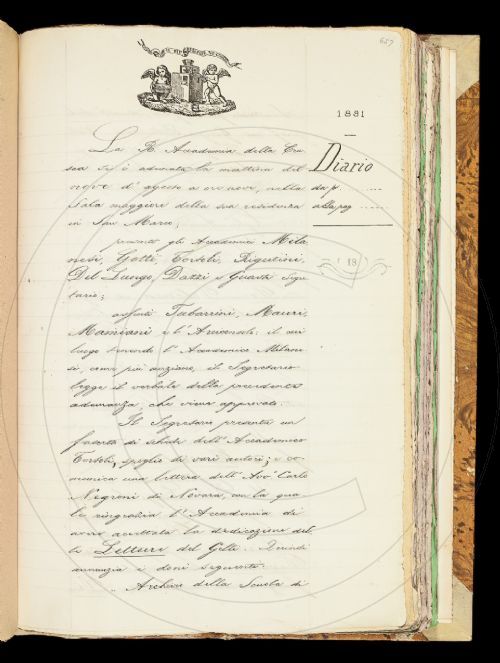 657
1881
Diario
da p. ....
a pag. ......
18
La R. Accademia della Cru-
sca si è adunata la mattina del
nove d'agosto a ore nove, nella
Sala maggiore della sua residenza
in San Marco;
presenti gli Accademici Mila-
nesi, Gotti, Tortoli, Rigutini,
Del Lungo, Dazzi e Guasti Segre-
tario;
assenti Tabarrini, Mauri,
Mamiani e l'Arciconsolo: il cui
luogo tenendo l'Accademico Milane-
si, come più anziano, il Segretario
legge il verbale della precedente
adunanza, che viene approvato.
Il Segretario presenta un
fascetto di schede dell'Accademico
Tortoli, spoglio di vari autori; e co-
munica una lettera dell'Avv. Carlo
Negroni di Novara, con la qua-
le ringrazia l'Accademia di
avere accettata la dedicazione del-
le Letture del Gelli. Quindi
annunzia i doni seguenti:
Archivio della Scuola di